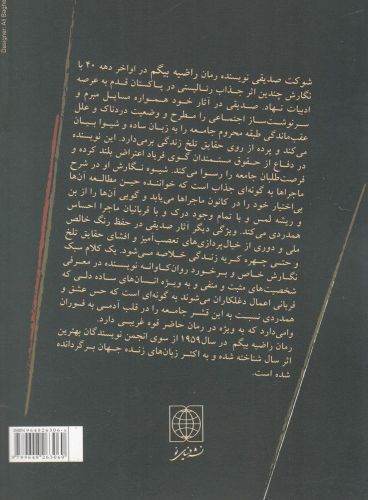 Designer: Ali Baghe
شوکت صدیقی نویسنده رمان راضیه بیگم در اواخر دهه ۴۰ با
نگارش چندین اثر جذاب رئالیستی در پاکستان قدم به عرصه
ادبیات نهاد. صدیقی در آثار خود همواره مسایل مبرم و
سرنوشت‌ساز اجتماعی را مطرح و وضعیت دردناک و علل
عقب‌ماندگی طبقه محروم جامعه را به زبان ساده و شیوا بیان
می‌کند و پرده از روی حقایق تلخ زندگی برمی‌دارد. این نویسنده
در دفاع از حقوق ستمندان گوی فریاد اعتراض بلند کرده و
فرصت‌طلبان جامعه را رسوا می‌کند. شیوه نگارش او در شرح
ماجراها به گونه‌ای جذاب است که خواننده حین مطالعه آن‌ها
بی‌اختیار خود را در کانون ماجراها می‌یابد و گویی آن‌ها را از بن
و ریشه لمس و با تمام وجود درک و با قربانیان ماجرا احساس
همدردی می‌کند. ویژگی دیگر آثار صدیقی در حفظ رنگ خالص
ملی و دوری از خیال‌پردازی‌های تعصب‌آمیز و افشای حقایق تلخ
و حتی چهره کریه زندگی خلاصه می‌شود. یک کلام سبک
نگارش خاص و برخورد روان‌کاوانه نویسنده در معرفی
شخصیت‌های مثبت و منفی و به ویژه انسان‌های ساده دلی که
قربانی اعمال دغلکاران می‌شوند به گونه‌ای است که حس عشق و
همدردی نسبت به این قشر جامعه را در قلب آدمی به فوران
وامی‌دارد که به ویژه در رمان حاضر قوه غریبی دارد.
رمان راضیه بیگم در سال ۱۹۵۹ از سوی انجمن نویسندگان بهترین
اثر سال شناخته شده و به اکثر زبان‌های زنده جهان برگردانده
شده است.
نشر دنیای نو
ISBN 964826306-8
9789648263069